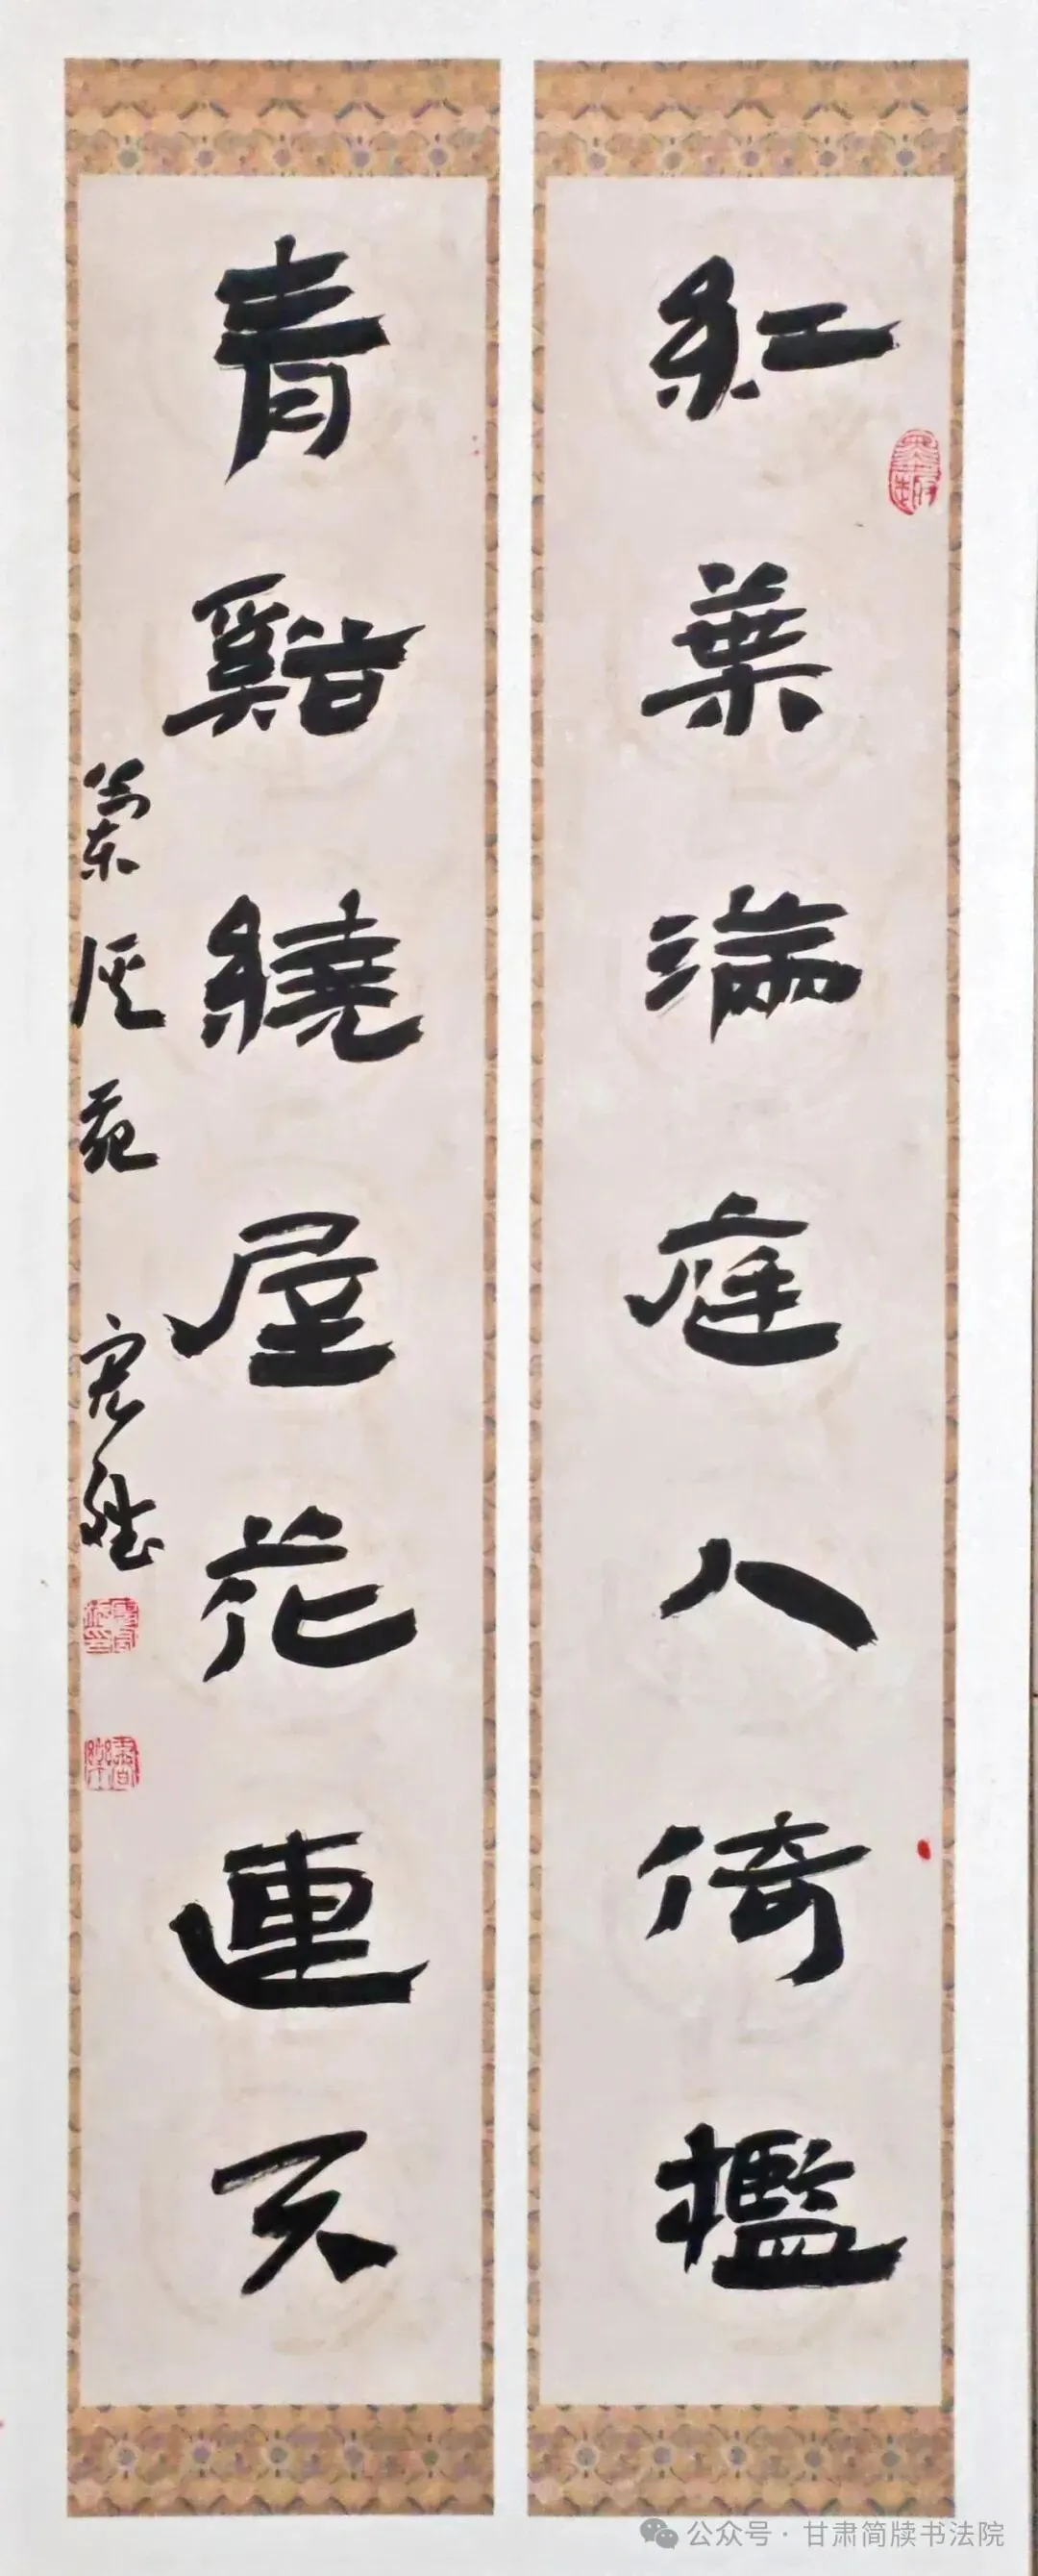 紅葉滿庭人倚檻
青谿繞屋花連天
蘭溪苑
公众号 · 甘肃简牍书法院